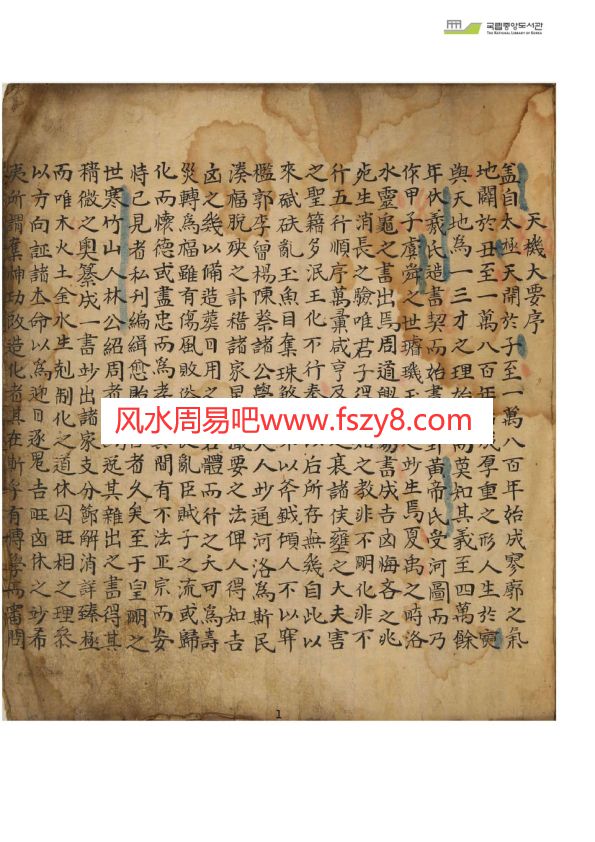 국립중앙도서관
THE NATIONAL LIBRARY OF KOREA
天機大要序
盖自太極天開於子至一萬八百年始成寥廓之氣
地闢於丑至一萬八百年成厚重之形人生於寅
與天地為一三才之理始而莫知其義至四萬餘
年伏羲氏造書契而始畫卦黃帝氏受河圖而乃
作甲子虞舜之世璿璣玉之妙生焉夏禹之時洛
水靈龜之書出焉周道易書成吉凶悔吝之兆
死生消長之驗唯君子得之教非不明化非不
行五行順序萬彙咸亨及之衰諸侯壅之大夫害
之聖籍多泯王化不行秦以后所存無幾自此以
來碔砆亂玉魚目奪珠以斧鉞傾人不以穽
檻郭李曾楊陳蔡諸公學人妙通河洛為斯民
湊福脫殃之計稽諸家撮要之法俾人得知吉
凶之幾以備造葬日用之體而行之夭可為壽
災轉為福雖有傷風敗俗亂臣賊子之流或歸
化而懷德或盡忠而為孝其間有不法正宗而妄
恃己見者私刊編緝愈貽者久矣至于皇明之
世寒竹山人林公紹周者返其雜出之書得其
精微之奧纂成一書妙出諸家支分節解消詳臻極
而唯木火土金水生剋制化之道休囚旺相之理叅
以方向証諸本命以為迎日逐鬼吉旺凶休之妙希
夷所謂奪神功改造化者其在斯乎有博學而審問
风水周易吧www.fszy8.com
1